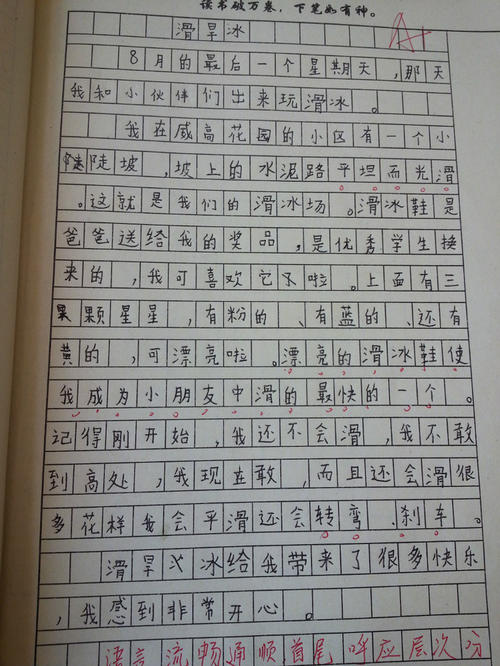 读书破万卷，下笔如有神。
A+
滑旱冰
8月的最后一个星期天，那天
我和小伙伴们出来玩滑冰。
我在威高花园的小区有一个小
陡坡，坡上的水泥路平坦而光滑
。这就是我们的滑冰场。滑冰鞋是
爸爸送给我的奖品，是优秀学生换
来的，我可喜欢它了啦。上面有三
颗星星，有粉的、有蓝的、还有
黄的，可漂亮啦。漂亮的滑冰鞋使
我成为小朋友中滑的最快的一个。
记得刚开始，我还不会滑，我不敢
到高处，我现在敢，而且还会滑很
多花样我会平滑还会转弯、刹车。
滑旱冰给我带来了很多快乐
，我感到非常开心。
语言流畅通顺，首尾呼应层次分